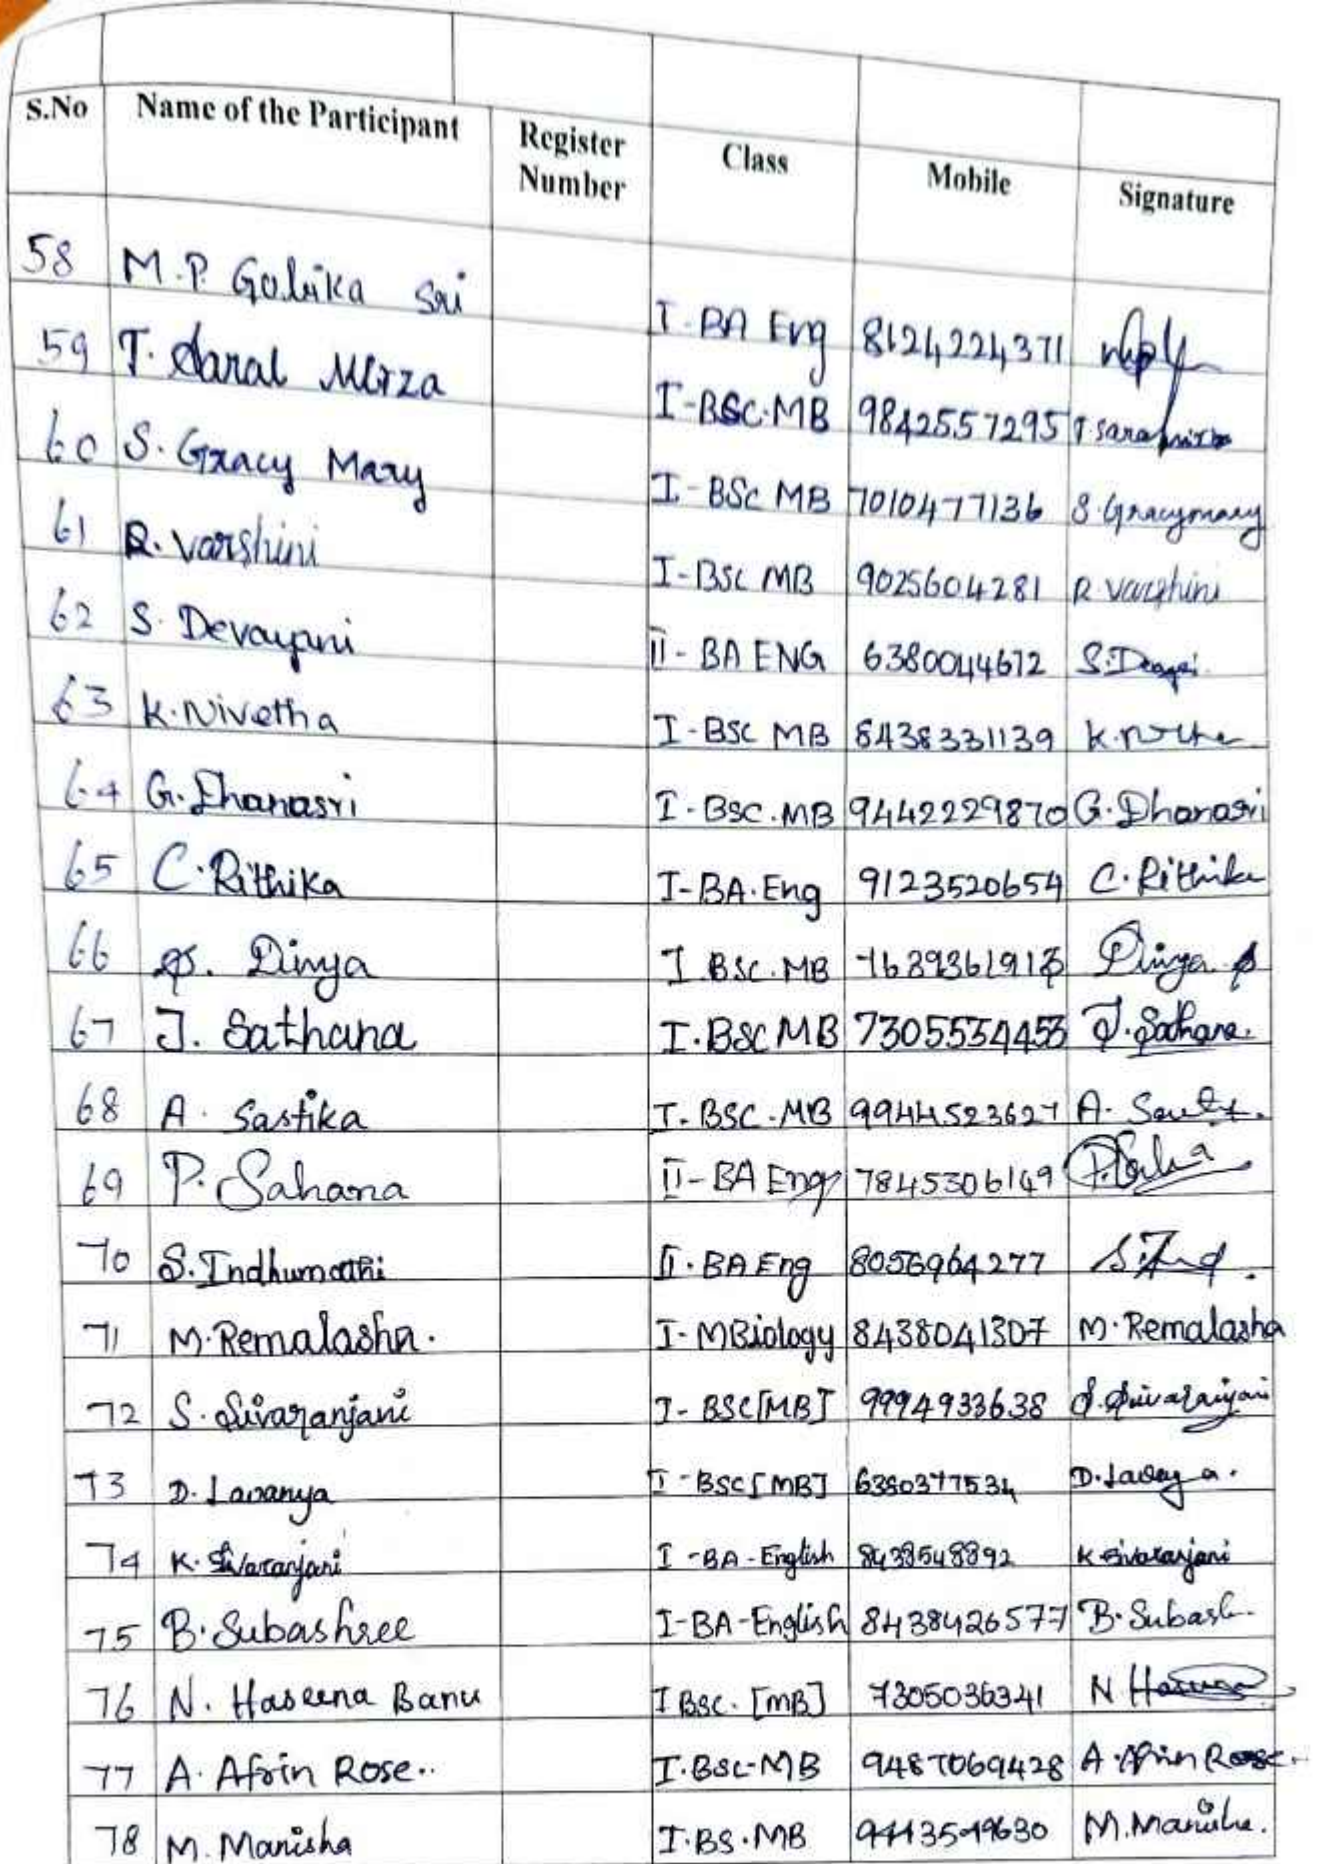 S.No Name of the Participant Register Number Class Mobile Signature
58 M.P. Golika Sri I-BA Eng 8124224371
59 T. Saral Mirza I-BSC.MB 9842557295
60 S. Gracy Mary I-BSc MB 7010477136 S.Gracymary
61 R. Varshini I-BSc MB 9025604281 R Varshini
62 S. Devayani II-BA ENG 6380044672
63 K.Nivetha I-BSC MB 8438331139
64 G. Dhanasri I-BSC.MB 9442229870 G. Dhanasri
65 C. Rithika I-BA.Eng 9123520654 C. Rithika
66 Divya I.BSC.MB Divya
67 J. Sathana I.BSC MB J. Sathana.
68 A. Sastika I.BSC.MB 9944523627 A.
69 P. Sahana II-BA Eng 7845306149
70 S. Indhumathi II.BA Eng 8056964277
71 M.Remalasha. I-MBiology 8438041307 M.Remalasha
72 S. Sivaranjani I-BSC[MB] 9994933638 S. Sivaranjani
73 D. Lavanya I-BSC[MB] 6380377534
74 K. Sivaranjani I-BA-English 8438548892 K Sivaranjani
75 B.Subashree I-BA-English 8438426577 B.Subash
76 N. Haseena Banu I BSC. [MB] 7305036341 N
77 A. Afrin Rose.. I.BSC-MB 9487069428 A.Afrin Rose.
78 M. Manisha I.BS.MB M.Manisha.